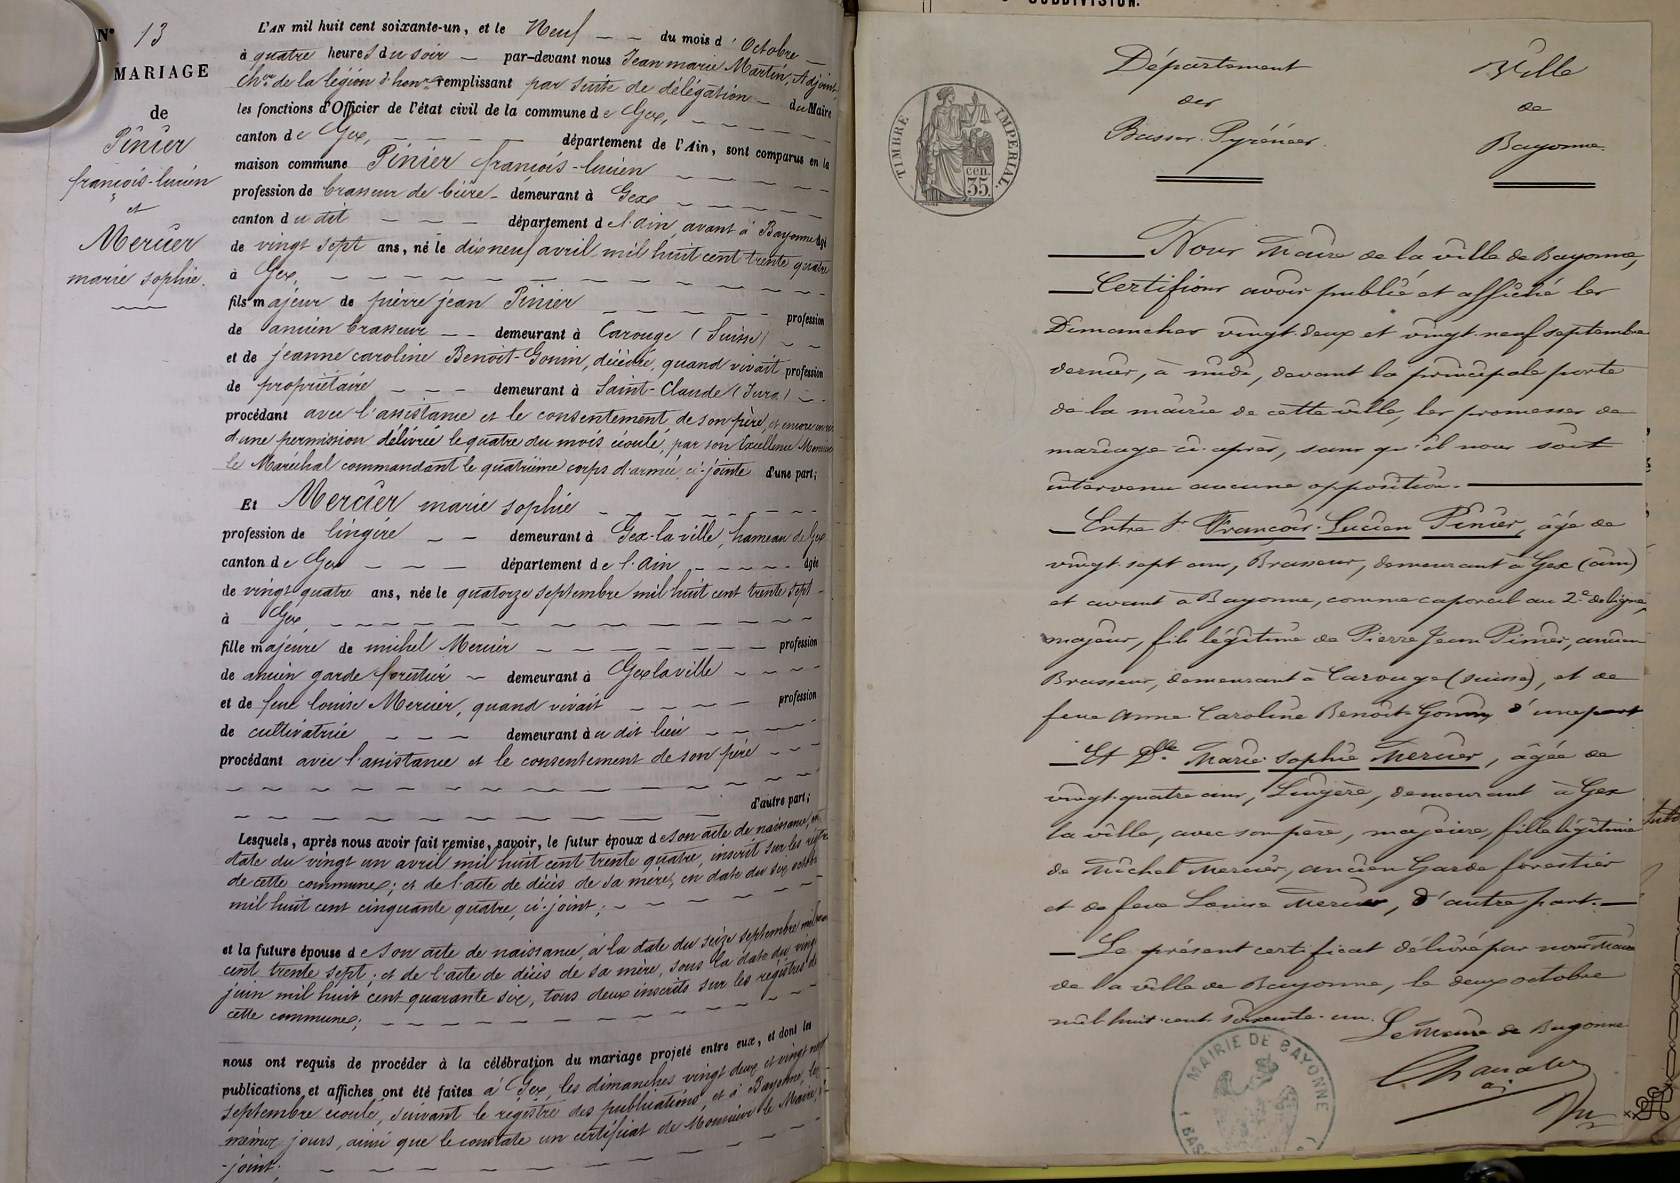 N° 13
MARIAGE
de
Pinier
françois-lucien
et
Mercier
marie sophie.
L'AN mil huit cent soixante-un, et le Neuf du mois d'Octobre
à quatre heures du soir par-devant nous Jean marie Martin, Adjoint,
ch.er de la légion d'honr remplissant par suite de délégation du Maire
les fonctions d'Officier de l'état civil de la commune de Gex,
canton de Gex, département de l'Ain, sont comparus en la
maison commune Pinier françois-lucien
profession de brasseur de bière demeurant à Gex
canton du dit département de l'ain, avant à Bayonne âgé
de vingt sept ans, né le dix neuf avril mil huit cent trente quatre
à Gex,
fils majeur de pierre jean Pinier profession
de ancien brasseur demeurant à Carouge (Suisse)
et de jeanne caroline Benoit-Gonin, décédée, quand vivait profession
de propriétaire demeurant à Saint-Claude (Jura)
procédant avec l'assistance et le consentement de son père, et encore
d'une permission délivrée le quatre du mois écoulé, par son Excellence
le Maréchal commandant le quatrième corps d'armée, ci-jointe d'une part;
Et Mercier marie sophie
profession de lingère demeurant à Gex-la-ville, hameau de Gex
canton de Gex département de l'ain âgée
de vingt quatre ans, née le quatorze septembre mil huit cent trente sept
à Gex
fille majeure de michel Mercier profession
de ancien garde forestier demeurant à Gex la ville
et de feue louise Mercier, quand vivait profession
de cultivatrice demeurant au dit lieu
procédant avec l'assistance et le consentement de son père
d'autre part;
Lesquels, après nous avoir fait remise, savoir, le futur époux de son acte de naissance, en
date du vingt un avril mil huit cent trente quatre, inscrit sur les registres
de cette commune; et de l'acte de décès de sa mère, en date du six octobre
mil huit cent cinquante quatre, ci-joint;
et la future épouse de son acte de naissance, à la date du seize septembre mil huit
cent trente sept; et de l'acte de décès de sa mère, sous la date du vingt
juin mil huit cent quarante six, tous deux inscrits sur les registres de
cette commune;
nous ont requis de procéder à la célébration du mariage projeté entre eux, et dont les
publications et affiches ont été faites à Gex, les dimanches vingt deux et vingt neuf
septembre écoulé, suivant le registre des publications et à Bayonne, les
mêmes jours, ainsi que le constate un certificat de Monsieur le Maire,
-joint;
SUBDIVISION.
TIMBRE IMPÉRIAL.
35 cen.
Département
des
Basses-Pyrénées.
Ville
de
Bayonne.
Nous Maire de la ville de Bayonne,
Certifions avoir publié et affiché les
Dimanches vingt-deux et vingt-neuf septembre
dernier, à midi, devant la principale porte
de la mairie de cette ville, les promesses de
mariage ci-après, sans qu'il nous soit
intervenu aucune opposition.
Entre Sr François-Lucien Pinier, âgé de
vingt sept ans, Brasseur, demeurant à Gex (ain)
et avant à Bayonne, comme caporal au 2e de ligne,
majeur, fils légitime de Pierre Jean Pinier, ancien
Brasseur, demeurant à Carouge (suisse), et de
feue Anne Caroline Benoit-Gonin, d'une part
Et Dlle Marie Sophie Mercier, âgée de
vingt-quatre ans, Lingère, demeurant à Gex
la ville, avec son père, majeure, fille légitime
de Michel Mercier, ancien Garde forestier
et de feue Louise Mercier, d'autre part.
Le présent certificat délivré par nous Maire
de la ville de Bayonne, le deux octobre
mil huit-cent soixante-un.
Le Maire de Bayonne
MAIRIE DE BAYONNE